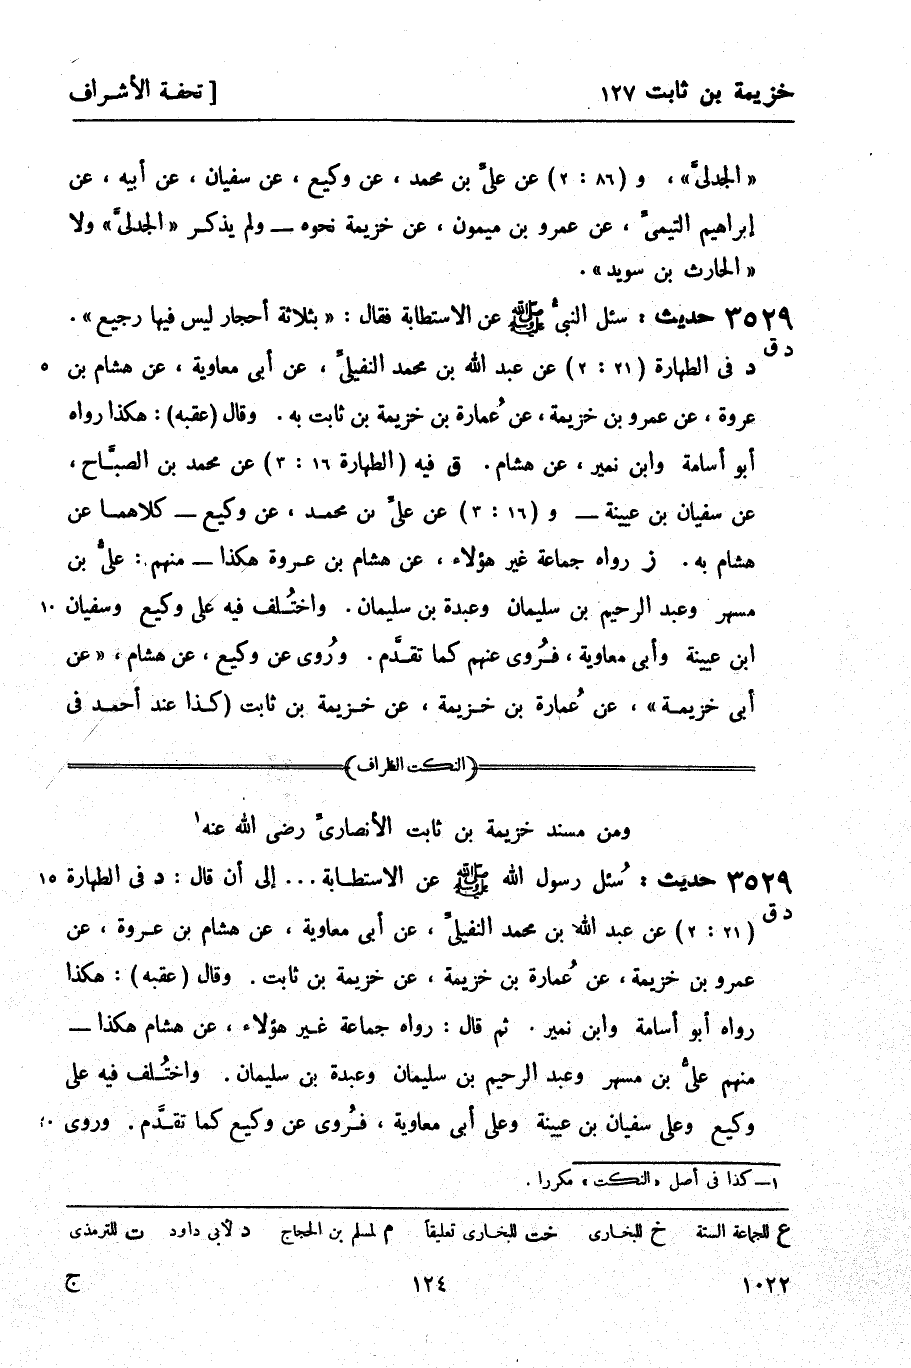 خزيمة بن ثابت ١٢٧ [ تحفة الأشراف
« الجدلىّ» ، و (٨٦ : ٢) عن علىّ بن محمد ، عن وكيع ، عن سفيان ، عن أبيه ، عن
إبراهيم التيمىّ ، عن عمرو بن ميمون ، عن خزيمة نحوه — ولم يذكر « الجدلىّ» ولا
« الحارث بن سويد» .
٣٥٢٩ حديث : سئل النبىّ ﷺ عن الاستطابة فقال : « بثلاثة أحجار ليس فيها رجيع» .
د ق
د فى الطهارة (٢١ : ٢) عن عبد الله بن محمد النفيلىّ ، عن أبى معاوية ، عن هشام بن ٥
عروة ، عن عمرو بن خزيمة ، عن عُمارة بن خزيمة بن ثابت به . وقال (عقبه) : هكذا رواه
أبو أسامة وابن نمير ، عن هشام . ق فيه (الطهارة ١٦ : ٣) عن محمد بن الصبّاح ،
عن سفيان بن عيينة — و (١٦ : ٣) عن علىّ بن محمد ، عن وكيع — كلاهما عن
هشام به . ز رواه جماعة غير هؤلاء ، عن هشام بن عروة هكذا — منهم : علىّ بن
مسهر وعبد الرحيم بن سليمان وعبدة بن سليمان . واختُلف فيه على وكيع وسفيان ١٠
ابن عيينة وأبى معاوية ، فرُوى عنهم كما تقدّم . ورُوى عن وكيع ، عن هشام ، « عن
أبى خزيمة» ، عن عُمارة بن خزيمة ، عن خزيمة بن ثابت (كذا عند أحمد فى
(النكت الظراف)
ومن مسند خزيمة بن ثابت الأنصارىّ رضى الله عنه١
٣٥٢٩ حديث : سُئل رسول الله ﷺ عن الاستطابة ... إلى أن قال : د فى الطهارة ١٥
د ق
(٢١ : ٢) عن عبد الله بن محمد النفيلىّ ، عن أبى معاوية ، عن هشام بن عروة ، عن
عمرو بن خزيمة ، عن عُمارة بن خزيمة ، عن خزيمة بن ثابت . وقال (عقبه) : هكذا
رواه أبو أسامة وابن نمير . ثم قال : رواه جماعة غير هؤلاء ، عن هشام هكذا —
منهم علىّ بن مسهر وعبد الرحيم بن سليمان وعبدة بن سليمان . واختُلف فيه على
وكيع وعلى سفيان بن عيينة وعلى أبى معاوية ، فرُوى عن وكيع كما تقدّم . وروى
١— كذا فى أصل «النكت» مكررا .
ع للجماعة الستة خ للبخارى خت للبخارى تعليقاً م لمسلم بن الحجاج د لأبى داود ت للترمذى
١٠٢٢ ١٢٤ ج